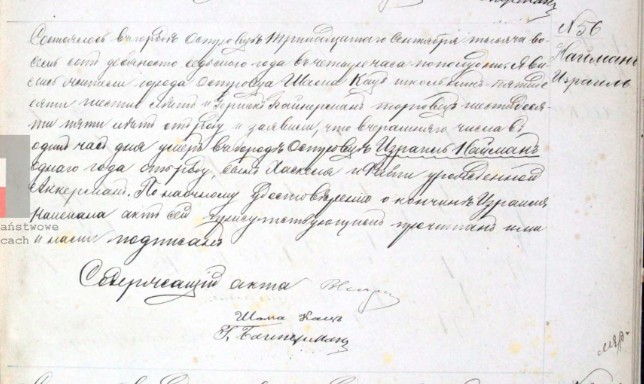 № 56
Найманъ
Израель
Состоялось въ городѣ Островцѣ тринадцатаго Сентября тысяча во-
семь сотъ девяносто седьмого года въ четыре часа пополудни. Яви-
лись жители города Островца Шлема Кацъ школьникъ пятиде-
сяти шести лѣтъ и Бейнерманъ торговецъ шестидеся-
ти пяти лѣтъ отъ роду и заявили, что вчерашняго числа въ
одинъ часъ дня умеръ въ городѣ Островцѣ Израель Найманъ
одного года отъ роду, сынъ Хаскеля и урожденной
Аккерманъ. По наочному удостовѣренію о кончинѣ Израеля
Наймана актъ сей присутствующимъ прочитанъ ими
и нами подписанъ
Содержащій акта
Шлема Кацъ
państwowe
cach